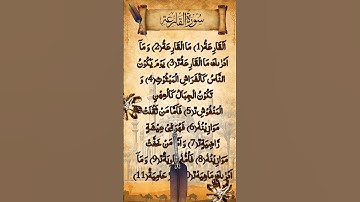 سُورَةُ القَارِعَة
اَلْقَارِعَةُ(1) مَا الْقَارِعَةُ(2) وَ مَاۤ
اَدْرٰىكَ مَا الْقَارِعَةُ(3) یَوْمَ یَكُوْنُ
النَّاسُ كَالْفَرَاشِ الْمَبْثُوْثِ(4) وَ
تَكُوْنُ الْجِبَالُ كَالْعِهْنِ
الْمَنْفُوْشِ(5) فَاَمَّا مَنْ ثَقُلَتْ
مَوَازِیْنُهٗ(6) فَهُوَ فِیْ عِیْشَةٍ
رَّاضِیَةٍ(7) وَ اَمَّا مَنْ خَفَّتْ
مَوَازِیْنُهٗ(8) فَاُمُّهٗ هَاوِیَةٌ(9) وَ مَاۤ
اَدْرٰىكَ مَاهِیَهْ(10) نَارٌ حَامِیَةٌ(11)